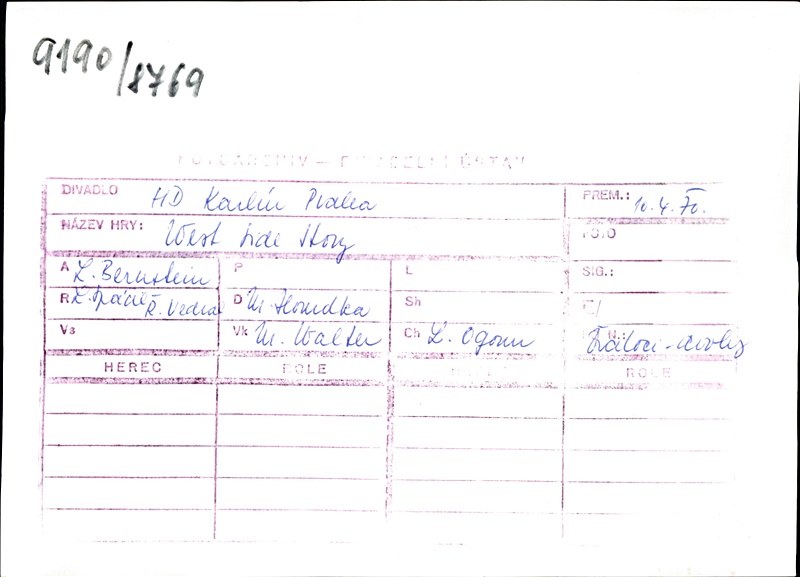 9190/8769
FOTOARCHIV – DIVADELNÍ ÚSTAV
DIVADLO HD Karlín Praha PREM.: 10.4.70.
NÁZEV HRY: West Side Story FOTO
A L. Bernstein P L SIG.:
R L. Spáčil R. Vrána D M. Hroudka Sh
Vs Vk M. Walter Ch L. Ogoun
HEREC ROLE ROLE